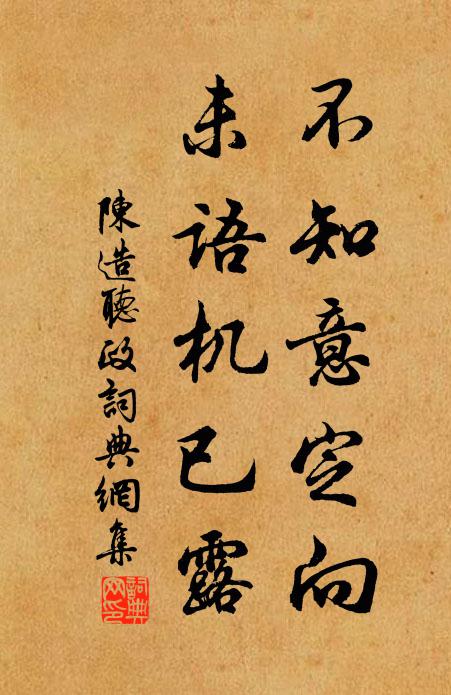 不知意定向
未语机已露
陳造聽政詞典網集
詞典網印